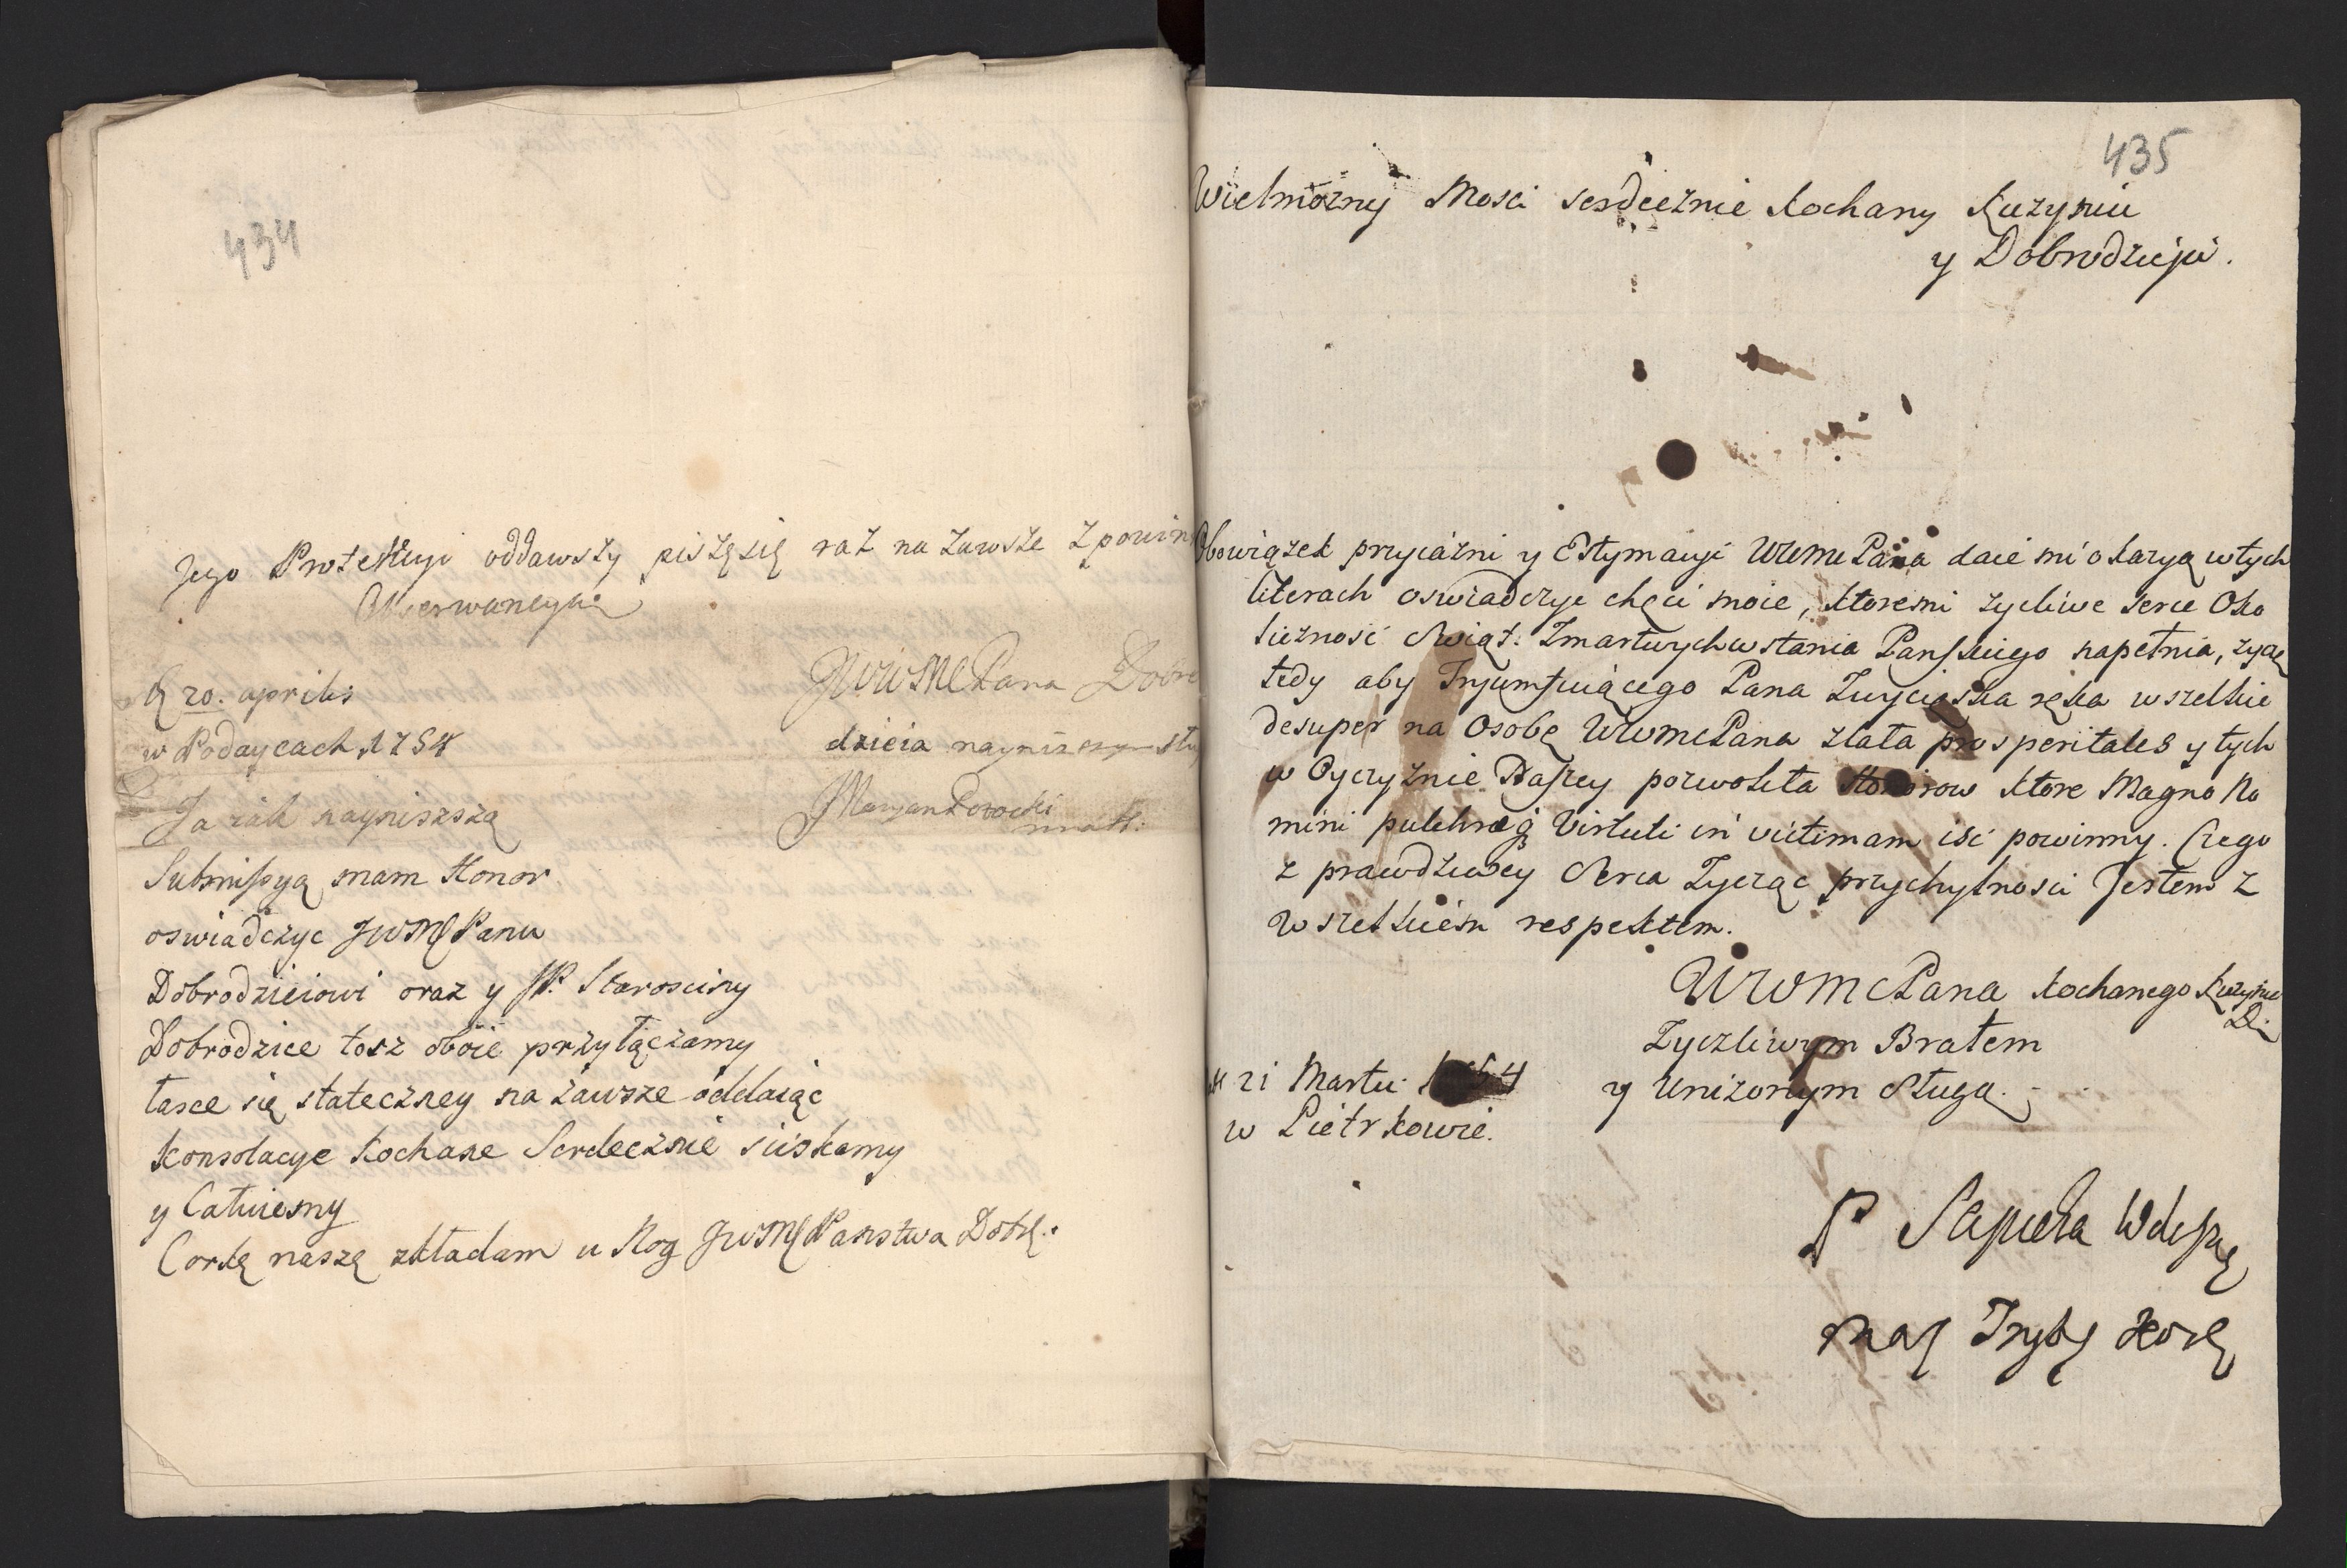 434
Jego Protekcyi oddawszy piszę się raz na zawsze z powin
Obserwancyą
JWWMCPana Dobro
D 20. aprilis
w Podaycach 1754
dzieia nayniszszym słu
Maryan Potocki
Ja iak nayniszszą
Submissyą mam Honor
oswiadczyc JWMPanu
Dobrodzieiowi oraz y JP. Starosciny
Dobrodzice tosz oboie przyłączamy
łasce się stateczney na zawsze oddaiąc
Konsolacye kochane Serdecznie sciskamy
y Całuiemy
Corkę naszę zkładam u Nog JWMPanstwa Dobr:
435
Wielmozny Mosci serdecznie kochany Kuzyniu
y Dobrodzieju.
Obowiązek przyiazni y Estymacyi WWMCPana daie mi okazyą w tych
literach oswiadczyc chęci moie, ktoremi zycliwe serce Oko
licznosc Swiąt. Zmartwychwstania Panskiego napełnia, zyczę
tedy aby Tryumfuiącego Pana Zwycięska ręka wszelkie
desuper na Osobę WWMCPana zlała prosperitates y tych
w Oyczyznie Naszey pozwoliła Honorow ktore Magno No
mini pulchræq Virtuti in victimam isc powinny. Czego
z prawdziwey Serca Zycząc przychylnosci Jestem z
wszelkiem respektem.
WWMCPana kochanego Kuzyna
D.
Zyczliwym Bratem
21 Martii 1754
y Unizonym Sługą.
w Piotrkowie.
P Sapieha
Mar Tryb Kor